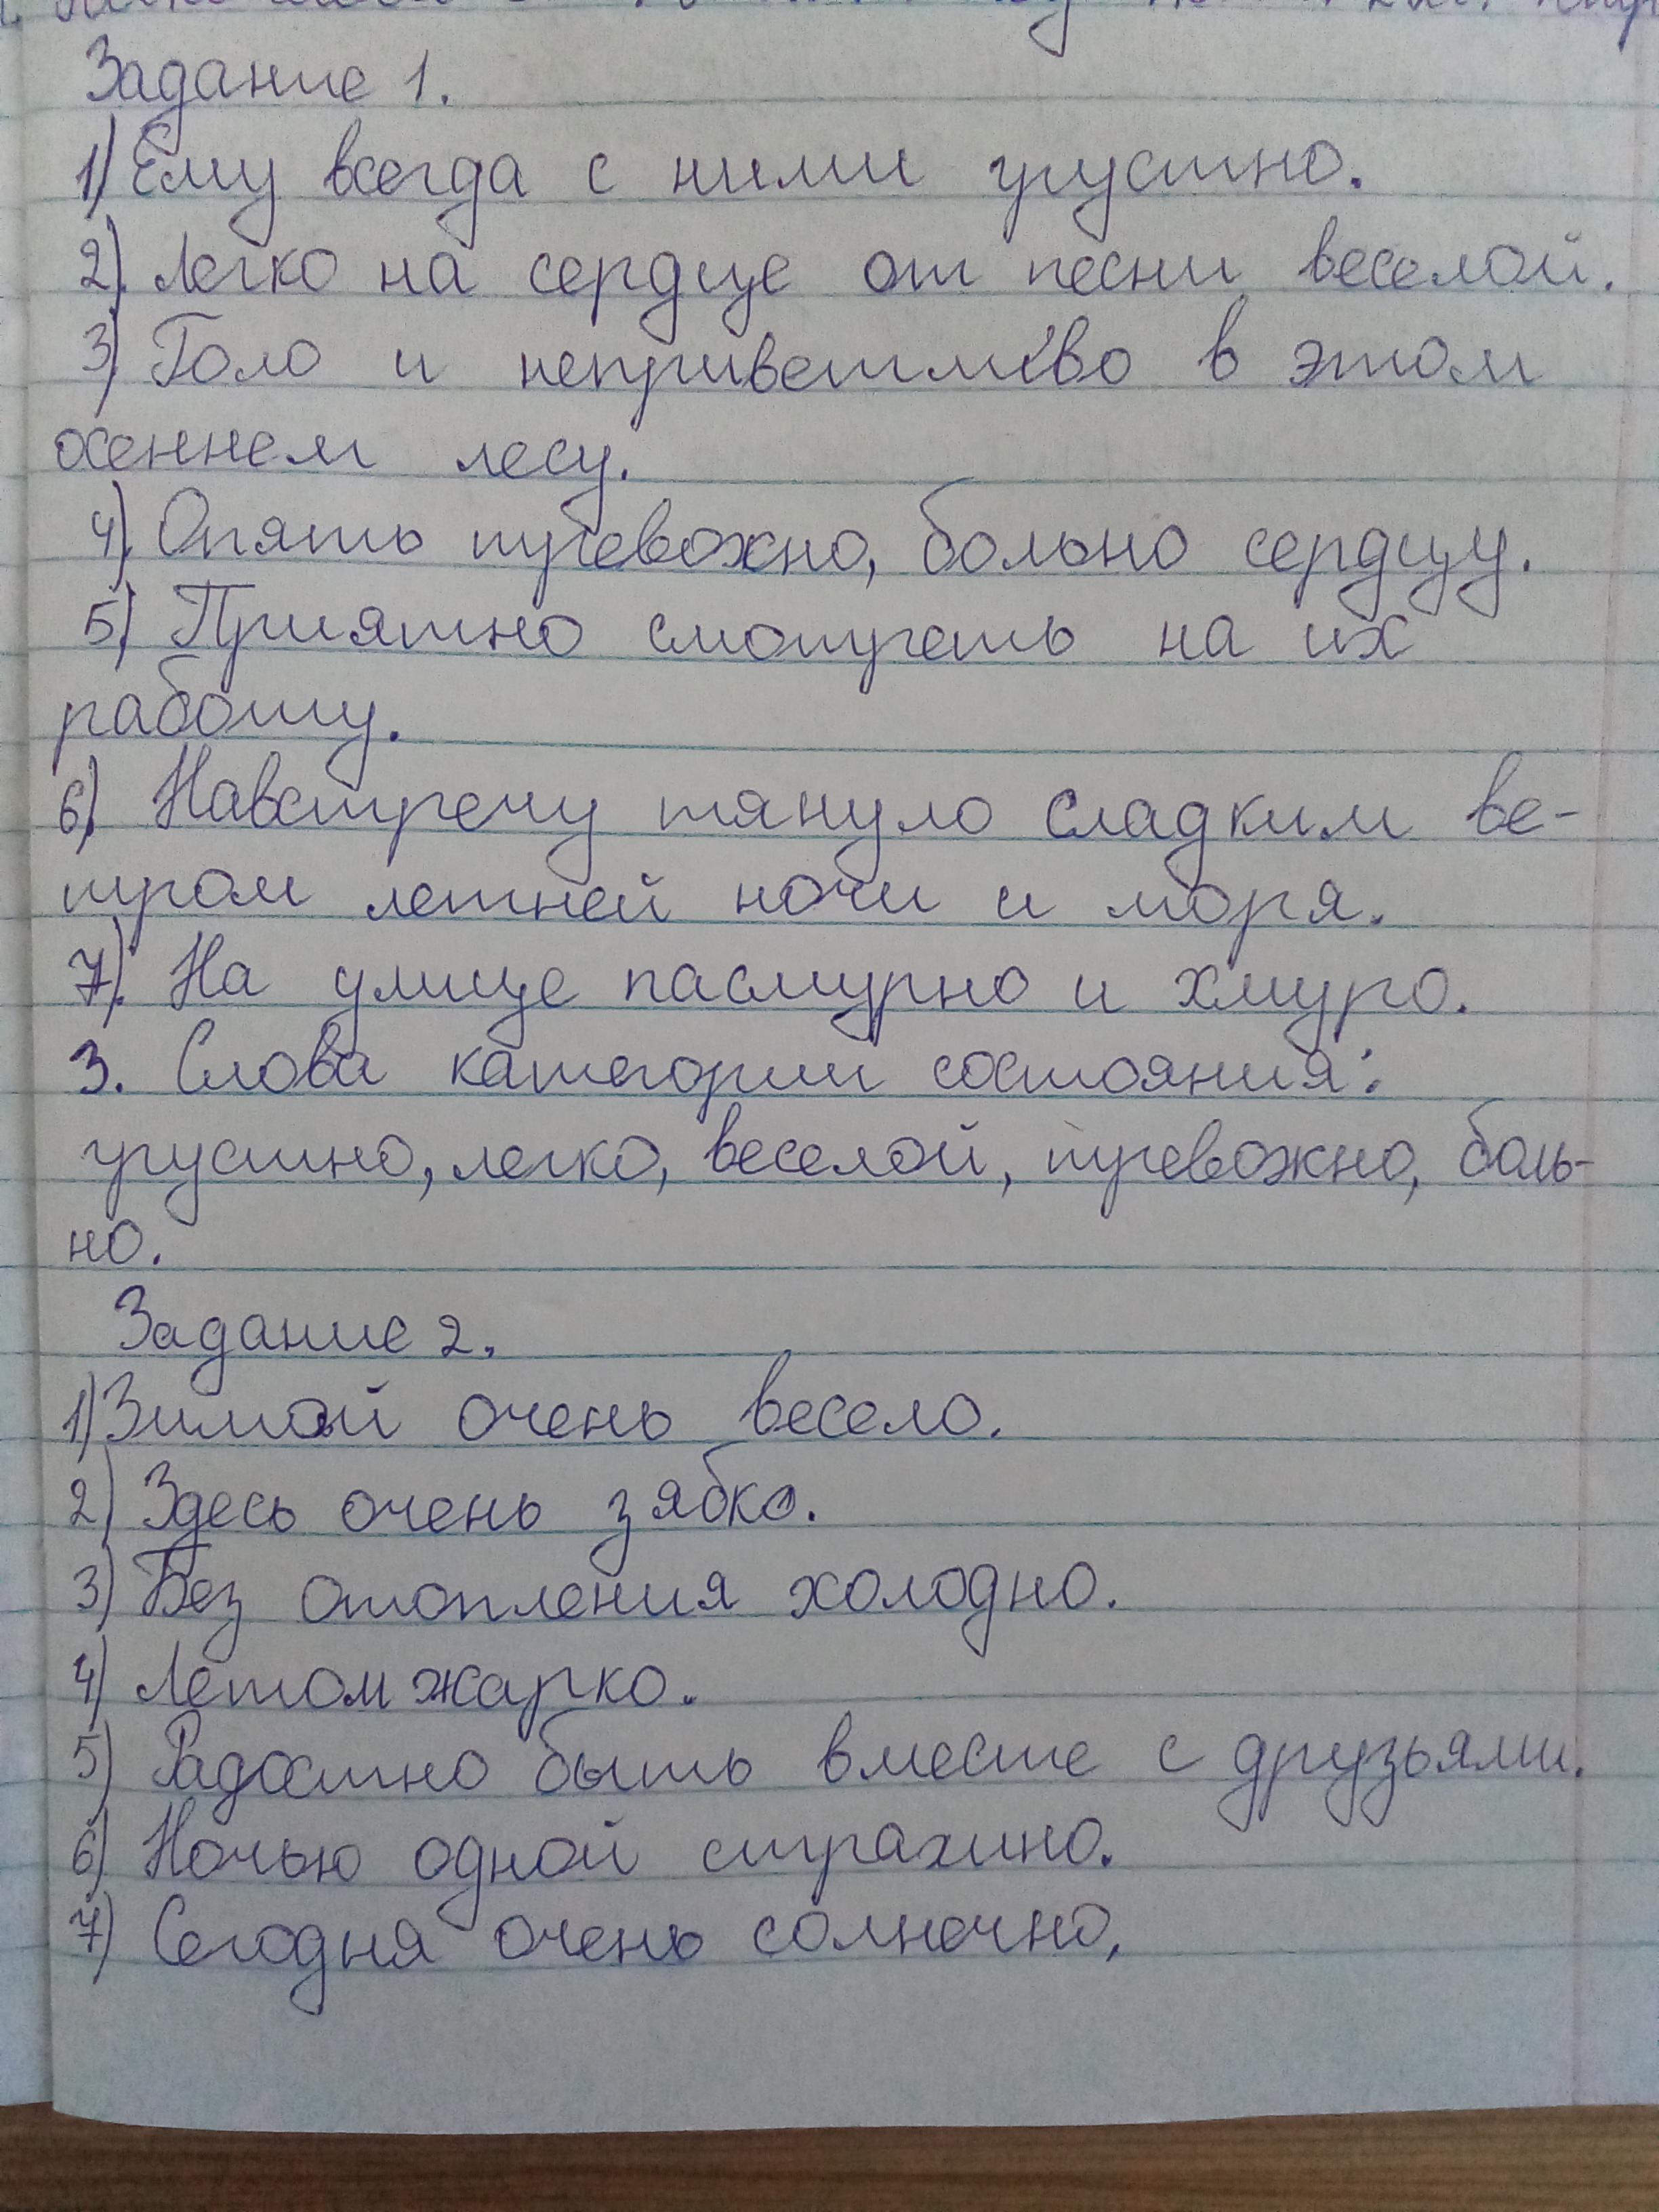 Задание 1.
1) Ему всегда с ними грустно.
2). Легко на сердце от песни веселой.
3). Голо и неприветливо в этом
осеннем лесу.
4). Опять тревожно, больно сердцу.
5) Приятно смотреть на их
работу.
6). Навстречу тянуло сладким ве-
тром летней ночи и моря.
7). На улице пасмурно и хмуро.
3. Слова категории состояния:
грустно, легко, веселой, тревожно, боль-
но.
Задание 2.
1) Зимой очень весело.
2) Здесь очень зябко.
3) Без отопления холодно.
4) Летом жарко.
5) Радостно быть вместе с друзьями.
6) Ночью одной страшно.
7) Сегодня очень солнечно,